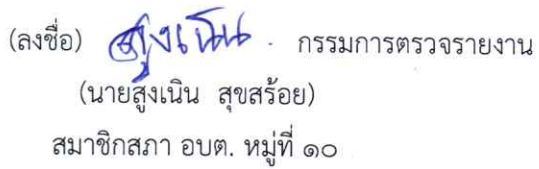 (ลงชื่อ) สูงเนิน กรรมการตรวจรายงาน
(นายสูงเนิน สุขสร้อย)
สมาชิกสภา อบต. หมู่ที่ ๑๐